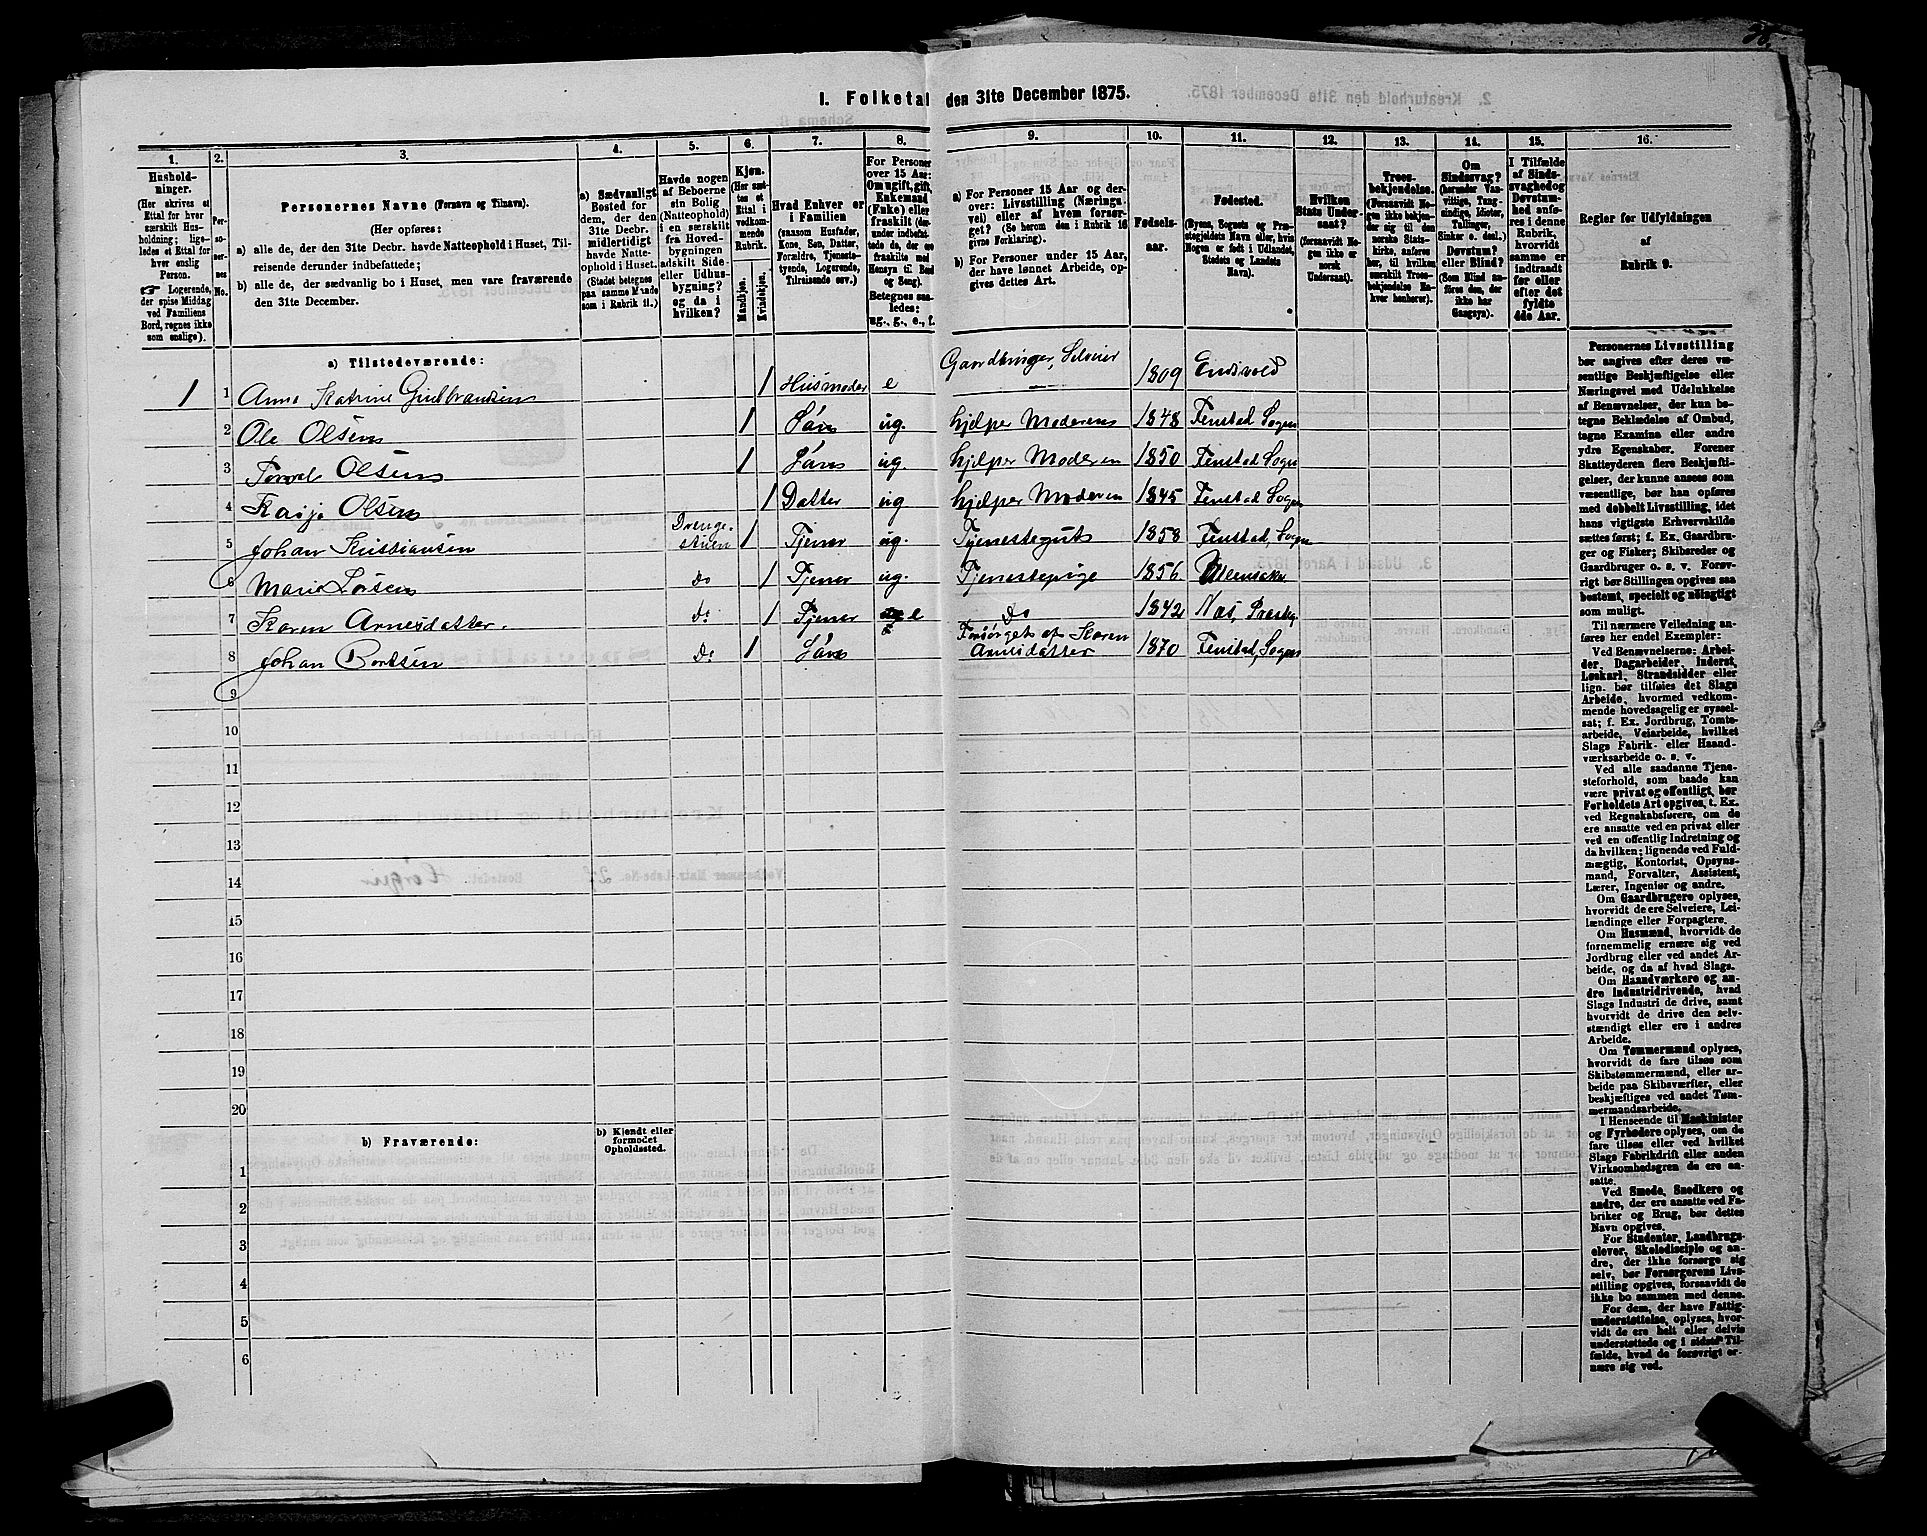 I. Folketal den 31te December 1875.
1.
Hushold-
ninger.
(Her skrives et
Ettal for hver
særskilt Hus-
holdning; lige-
ledes et Ettal for
hver enslig
Person.
☞ Logerende,
der spise Middag
ved Familiens
Bord, regnes ikke
som enslige).
2.
Per-
so-
ner-
nes
No.
3.
Personernes Navne (Fornavn og Tilnavn).
(Her opføres:
a) alle de, der den 31te Decbr. havde Natteophold i Huset, Til-
reisende derunder indbefattede;
b) alle de, der sædvanlig bo i Huset, men vare fraværende
den 31te December.
4.
a) Sædvanligt
Bosted for
dem, der den
31te Decbr.
midlertidigt
havde Natte-
ophold i Huset.
(Stedet betegnes
paa samme Maade
som i Rubrik 11.)
5.
Havde nogen
af Beboerne
sin Bolig
(Natteophold)
i en særskilt
fra Hoved-
bygningen
adskilt Side-
eller Udhus-
bygning?
og da i
hvilken?
6.
Kjøn.
(Her sæt-
tes et
Ettal i
vedkom-
mende
Rubrik.
Mandkjøn.
Kvindekjøn.
7.
Hvad Enhver er
i Familien
(saasom Husfader,
Kone, Søn, Datter,
Forældre, Tjeneste-
tyende, Logerende,
Tilreisende osv.)
8.
For Personer
over 15 Aar:
Om ugift, gift,
Enkemand
(Enke) eller
fraskilt (der-
under indbefat-
tede da, der ere
fraskilte med
Hensyn til Bord
og Seng).
Betegnes saa-
ledes:
ug., g., e., f.
9.
a) For Personer 15 Aar og der-
over: Livsstilling (Nærings-
vei) eller af hvem forsør-
get? (Se herom den i Rubrik 16
givne Forklaring).
b) For Personer under 15 Aar,
der have lønnet Arbeide, op-
gives dettes Art.
10.
Fødsels-
aar.
11.
Fødested.
(Byens, Sognets og Præ-
stegjeldets Navn eller, hvis
Nogen er født i Udlandet,
Stedets og Landets
Navn).
12.
Hvilken
Stats Under-
saat?
(forsaavidt No-
gen ikke er
norsk
Undersaat).
13.
Troes-
bekjendelse.
(Forsaavidt No-
gen ikke bekjen-
der sig til den
norske Stats-
kirke, anføres
her, til hvilken
særskilt Troes-
bekjendelse En-
hver henhører).
14.
Om
Sindssvag?
(herunder Van-
vittige, Tung-
sindige, Idioter,
Tullinger,
Sinker o. desl.)
Døvstum?
eller Blind?
(Som Blind an-
føres den, der
ikke har
Gangsyn).
15.
I Tilfælde
af Sinds-
svaghed og
Døvstum-
hed anfø-
res i denne
Rubrik,
hvorvidt
samme er
indtraadt
før eller
efter det
fyldte
4de Aar.
16.
Regler for Udfyldningen
af
Rubrik 9.
a) Tilstedeværende:
1 1 Anne Katrine Gulbrandsen 1 Husmoder e Gaardbruger, Selveier 1809 Eidsvold
2 Ole Olsen 1 Søn ug. hjelper Moderen 1848 Fenstad Sogn
3 Olsen 1 Søn ug hjelper Moderen 1850 Fenstad Sogn
4 Kasja Olsen 1 Datter ug hjelper Moderen 1845 Fenstad Sogn
5 Johan Kristiansen Drenge-stuen 1 Tjener ug. Tjenestegut 1858 Fenstad, Sogn
6 Marie Larsen do 1 Tjener ug. Tjenestepige 1856 Ullensaker
7 Karen Arnesdatter. do 1 Tjener e Do 1842 Næs, Præstgj
8 Johan do 1 Søn Forsørget af Karen Arnesdatter 1870 Fenstad, Sogn
9
10
11
12
13
14
15
16
17
18
19
20
b) Fraværende:
b) Kjendt eller
formodet
Opholdssted.
1
2
3
4
5
6
Personernes Livsstilling
bør angives efter deres væ-
sentlige Beskjæftigelse eller
Næringsvei med Udelukkelse
af Benævnelser, der kun be-
tegne Beklædelse af Ombud,
tagne Examina eller andre
ydre Egenskaber. Forener
Skatteyderen flere Beskjæfti-
gelser, der kunne ansees som
væsentlige, bør han opføres
med dobbelt Livsstilling, idet
hans vigtigste Erhvervskilde
sættes først; f. Ex. Gaardbru-
ger og Fisker; Skibsreder og
Gaardbruger o. s. v. Forøv-
rigt bør Stillingen opgives saa
bestemt, specielt og nøiagtigt
som muligt.
Til nærmere Veiledning an-
føres her endel Exempler:
Ved Benævnelserne: Arbei-
der, Dagarbeider, Inderst,
Løskarl, Strandsidder eller
lign. bør tilføies det Slags
Arbeide, hvormed vedkom-
mende hovedsagelig er syssel-
sat; f. Ex. Jordbrug, Tomte-
arbeide, Veiarbeide, hvilket
Slags Fabrik- eller Haand-
værksarbeide o. s. v.
Ved alle saadanne Tjene-
steforhold, som baade kan
være privat og offentligt, bør
Forholdets Art opgives, t. Ex.
ved Regnskabsførere, om de
ere ansatte ved en privat eller
ved en offentlig Indretning og
da hvilken; lignende ved Fuld-
mægtig, Kontorist, Opsyns-
mand, Forvalter, Assistent,
Lærer, Ingeniør og andre.
Om Gaardbrugere oplyses,
hvorvidt de ere Selveiere, Lei-
lændinge eller Forpagtere.
Om Husmænd, hvorvidt de
fornemmelig ernære sig ved
Jordbrug eller ved andet Ar-
beide, og da af hvad Slags.
Om Haandværkere og an-
dre Industridrivende, hvad
Slags Industri de drive, samt
hvorvidt de drive den selv-
stændigt eller ere i andres
Arbeide.
Om Tømmermænd oplyses,
hvorvidt de fare tilsøs som
Skibstømmermænd, eller ar-
beide paa Skibsværfter, eller
beskjæftiges ved andet Tøm-
mermandsarbeide.
I Henseende til Maskinister
og Fyrbødere oplyses, om de
fare tilsøs eller ved hvilket
Slags Fabrikdrift eller anden
Virksomhedsgren de ere an-
satte.
Ved Smede, Snedkere og
andre, der ere ansatte ved Fa-
briker og Brug, bør dettes
Navn opgives.
For Studenter, Landbrugs-
elever, Skoledisciple og an-
dre, der ikke forsørge sig
selv, bør Forsørgerens Livs-
stilling opgives, forsaavidt de
ikke bo sammen med denne.
For dem, der have Fattig-
understøttelse, oplyses, hvor-
vidt de ere helt eller delvis
understøttede og i sidste Til-
fælde, hvad de forøvrigt er-
nære sig ved.